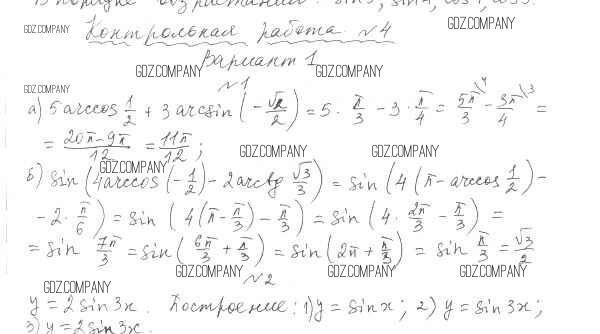 В порядке возрастания: sin3, sin4, cos4, cos3.
GDZ.COMPANY Контрольная работа №4 GDZ.COMPANY
Вариант 1
GDZ.COMPANY GDZ.COMPANY
GDZ.COMPANY №1
а) 5 arccos 1/2 + 3 arcsin (-√2/2) = 5 · π/3 - 3 · π/4 = 5π/3 \4 - 3π/4 \3 =
= 20π-9π/12 = 11π/12 ;
GDZ.COMPANY GDZ.COMPANY GDZ.COMPANY
б) sin (4 arccos (-1/2) - 2 arctg √3/3) = sin (4 (π - arccos 1/2) -
- 2 · π/6) = sin (4 (π - π/3) - π/3) = sin (4 · 2π/3 - π/3) =
= sin 7π/3 = sin (6π/3 + π/3) = sin (2π + π/3) = sin π/3 = √3/2
GDZ.COMPANY GDZ.COMPANY GDZ.COMPANY
GDZ.COMPANY №2
y = 2 sin 3x. Построение: 1) y = sin x; 2) y = sin 3x;
3) y = 2 sin 3x.